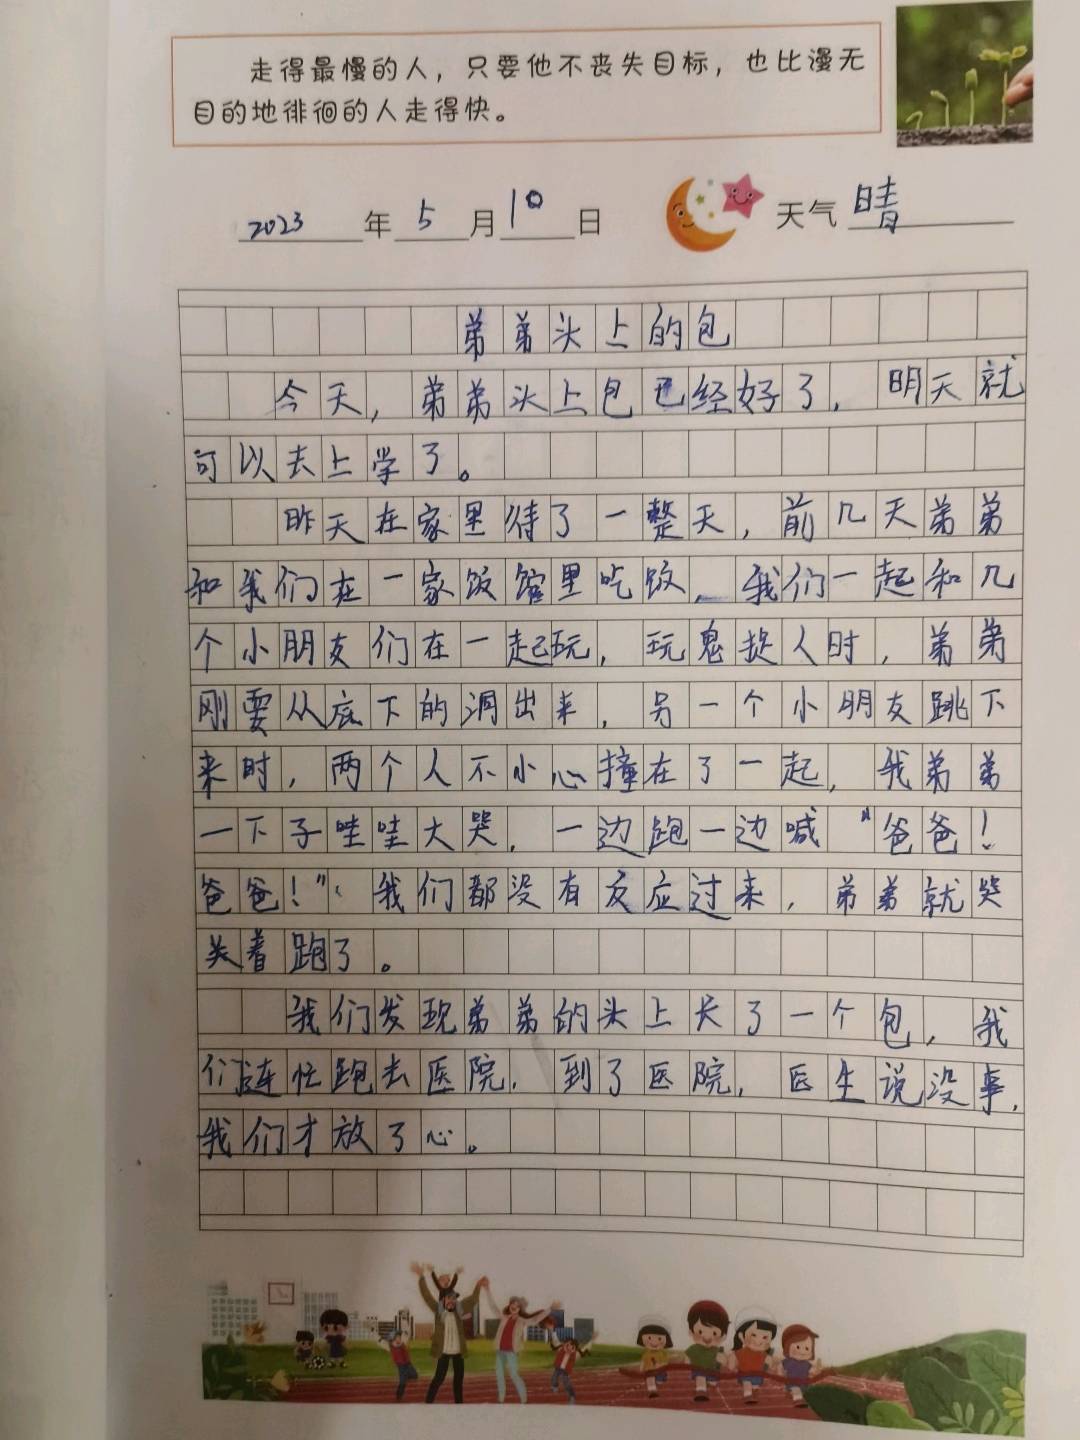 走得最慢的人，只要他不丧失目标，也比漫无
目的地徘徊的人走得快。
2023年5月10日 天气 晴
弟弟头上的包
今天，弟弟头上包已经好了，明天就
可以去上学了。
昨天在家里待了一整天，前几天弟弟
和我们在一家饭馆里吃饭，我们一起和几
个小朋友们在一起玩，玩鬼捉人时，弟弟
刚要从底下的洞出来，另一个小朋友跳下
来时，两个人不小心撞在了一起，我弟弟
一下子哇哇大哭，一边跑一边喊“爸爸！
爸爸！”、我们都没有反应过来，弟弟就哭
关着跑了。
我们发现弟弟的头上长了一个包，我
们连忙跑去医院，到了医院，医生说没事，
我们才放了心。